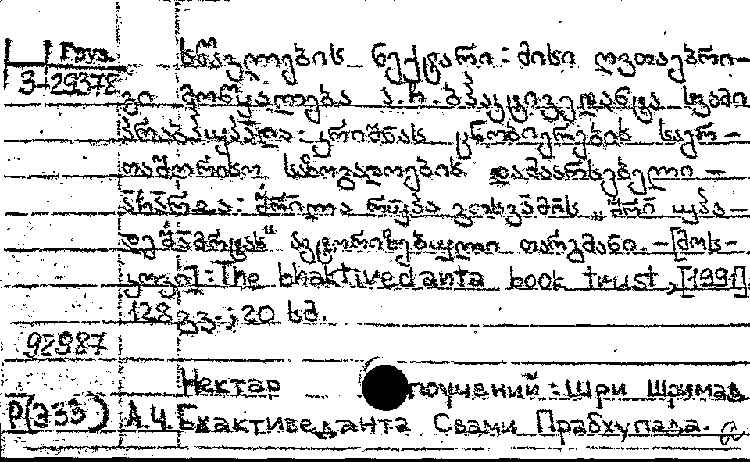 სწავლების ნექტარი: მისი ღვთაებრი-
3-29378
ვი მოწყალება ა.ჩ. ბჰაკტივედანტა სვამი
პრაბჰუპადა: კრიშნას ცნობიერების საერ-
თაშორისო საზოგადოების დამაარსებელი -
აჩარია: შრილა რუპა გოსვამის „შრი უპა-
დეშამრიტას“ ავტორიზებული თარგმანი. - [მოს-
კოვი]: The bhaktivedanta book trust, [1991].
128 გვ.; 20 სმ.
92987
Нектар поучений: Шри Шримад
Р(ЭЗЗ) А.Ч. Бхактиведанта Свами Прабхупада.